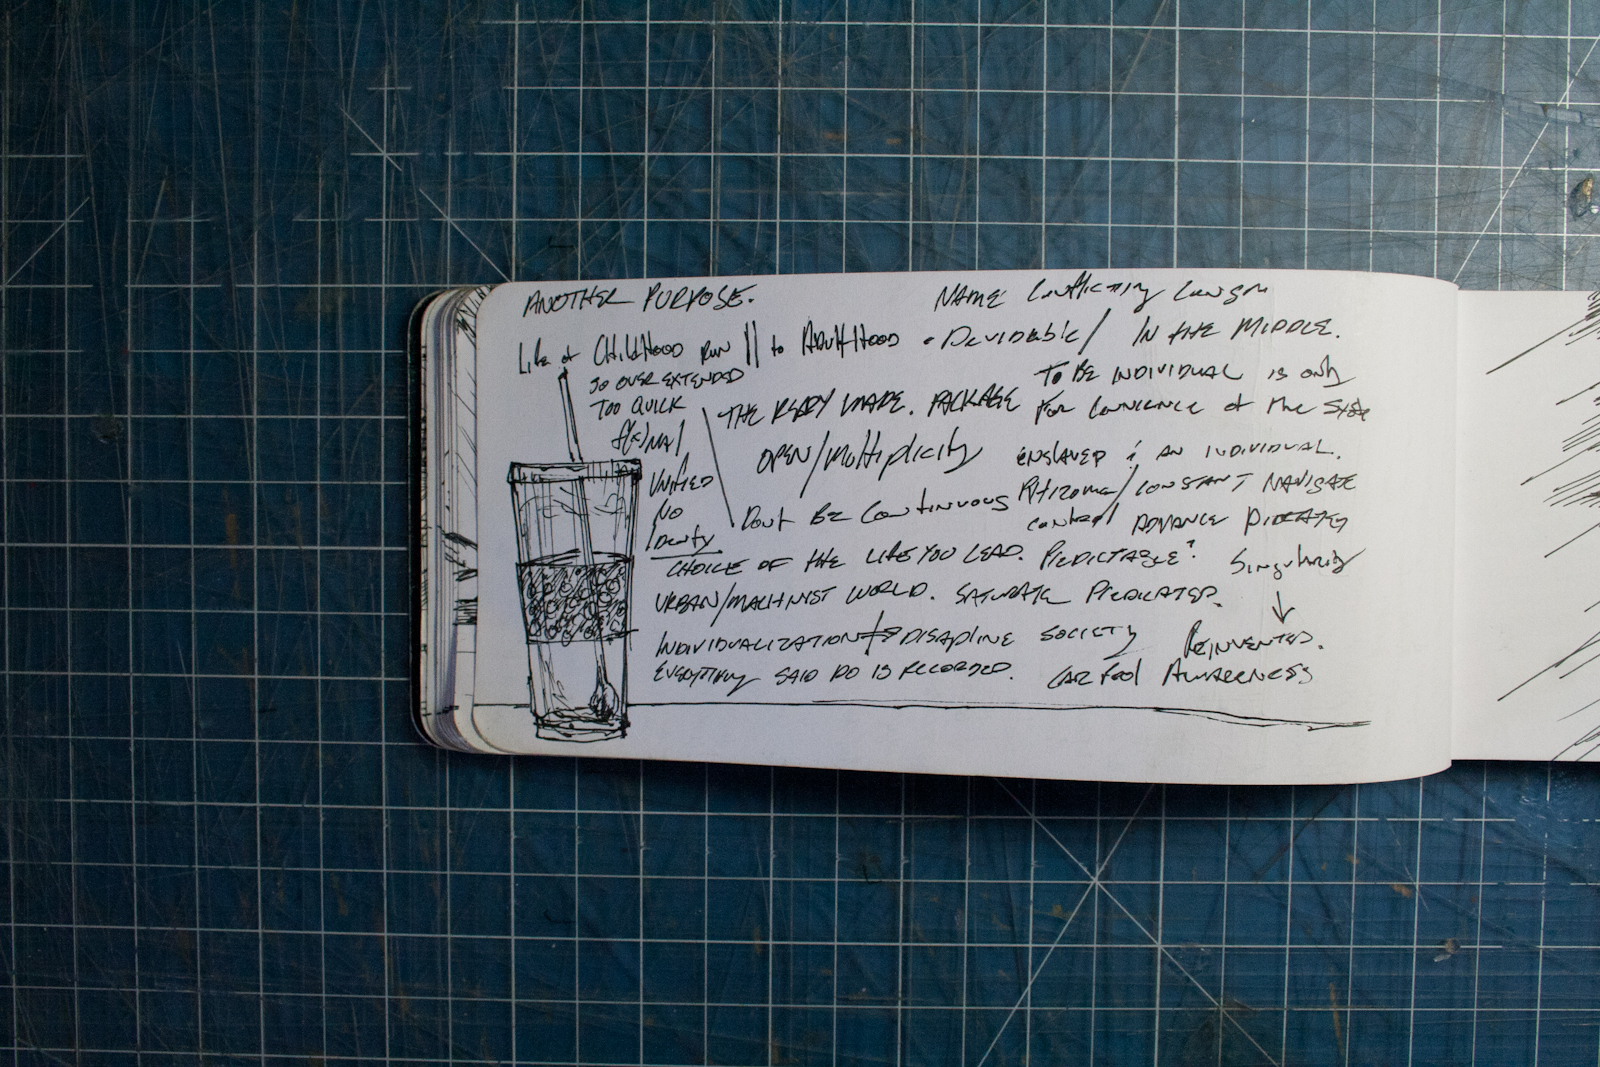 ANOTHER PURPOSE.
NAME Conflicting
Like a CHILDHOOD RUN || to ADULTHOOD • Devideble / IN the MIDDLE.
SO OVER EXTENDED
TOO QUICK
TO BE INDIVIDUAL is only
THE READY MADE. PACKAGE for of the
OPEN/Multiplicity ENSLAVED AN INDIVIDUAL.
UNIFIED
NO
Dont BE Continuous / CONSTANT NAVIGATE
control ADVANCE
CHOICE OF the LIFE YOU LEAD. PREDICTABLE? Singularity
URBAN/MACHINIST WORLD. SATURATE
INDIVIDUALIZATION DISAPLINE SOCIETY REINVENTED.
EVERYTHING SAID DO IS RECORDED. AWARENESS